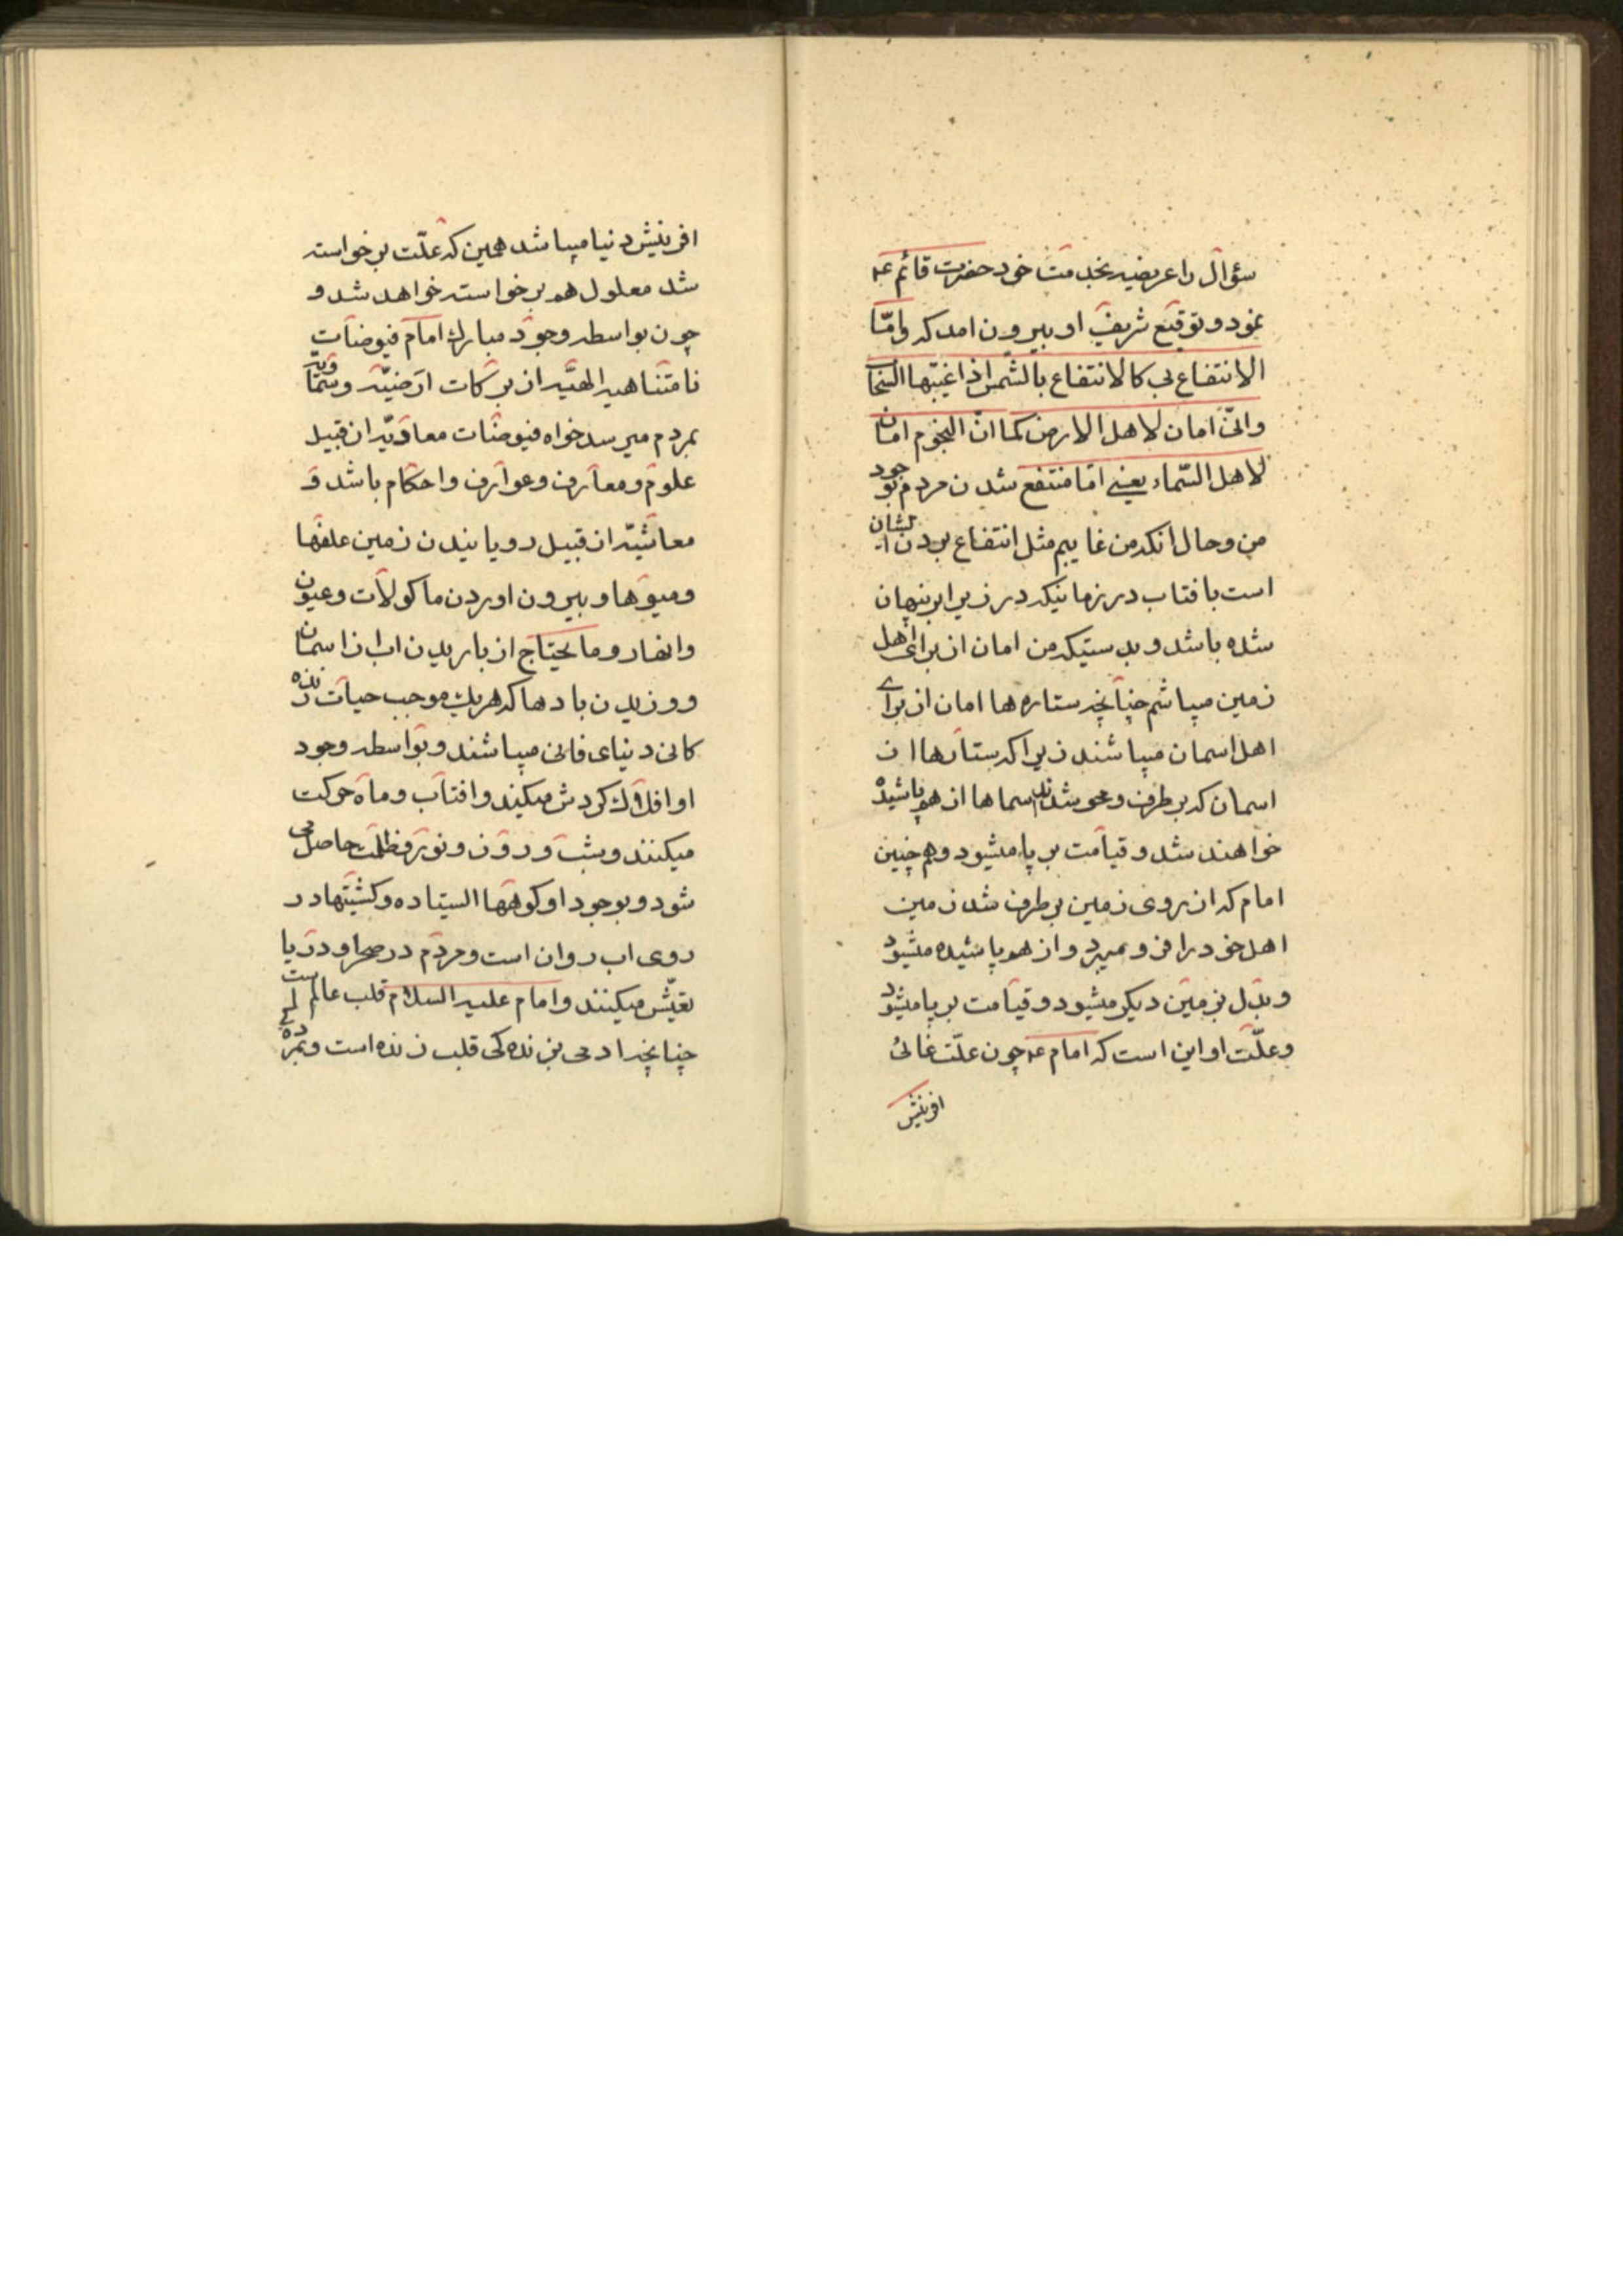 سؤال را عریضه بخدمت خود حضرت قائم عه
نمود و توقیع شریف او بیرون امد که وامّا
الانتفاع بی کالانتفاع بالشمس اذا غیبّها السّحاب
وانّی امان لاهل الارض کما انّ النجوم امان
لاهل السّماء یعنی امّا منتفع شدن مردم بوجود
من وحال انکه من غایبم مثل انتفاع بردن ایشان
است بافتاب در زمانیکه در زیر ابر پنهان
شده باشد و بدستیکه من امان از برای اهل
زمین میباشم چنانچه ستاره ها امان از برای
اهل اسمان میباشند زیرا که ستارها از
اسمان که برطرف و محو شدند اسماها از هم پاشیده
خواهند شد و قیامت بر پا میشود و هم چنین
امام که از روی زمین برطرف شد زمین
اهل خود را فرو میبرد و از هم پاشیده میشود
و بدّل بزمین دیکر میشود و قیامت بر پا میشود
و علّت او این است که امام عه چون علّت غائیْ
افرینش
افرینش دنیا میباشد همین که علّت برخواسته
شد معلول هم برخواسته خواهد شد و
چون بواسطه وجود مبارک امام فیوضات
نامتناهیه الهیّه از برکات ارضیّه و سماویّه
بمردم میرسد خواه فیوضات معادیّه از قبیل
علوم و معارف و عوارف و احکام باشد و
معاشیّه از قبیل رویانیدن زمین علفها
و میوها و بیرون اوردن ماکولات و عیون
و انهار و ما یحتاج از باریدن اب از اسمان
و وزیدن بادها که هریک موجب حیات زنده
کانی دنیای فانی میباشند و بواسطه وجود
او افلاک کردش میکیند و افتاب و ماه حرکت
میکنند و شب و روز و نور و ظلمت حاصل می
شود و بوجود او کوهها ایستاده و کشتیها در
روی اب روان است و مردم در صحرا و دریا
تعیّش میکنند و امام علیه السلام قلب عالم است
چنانچه ادمی بزنده کی قلب زنده است و بمرده